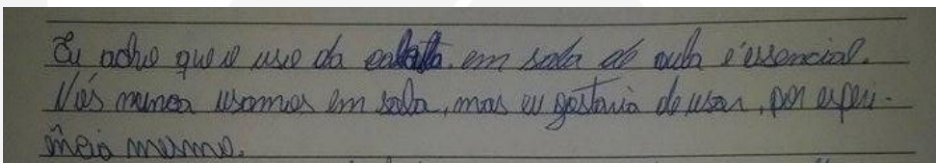 Eu acho que o uso da em sala de aula é essencial.
Nós nunca usamos em sala, mas eu gostaria de usar, por experi-
ência mesmo.